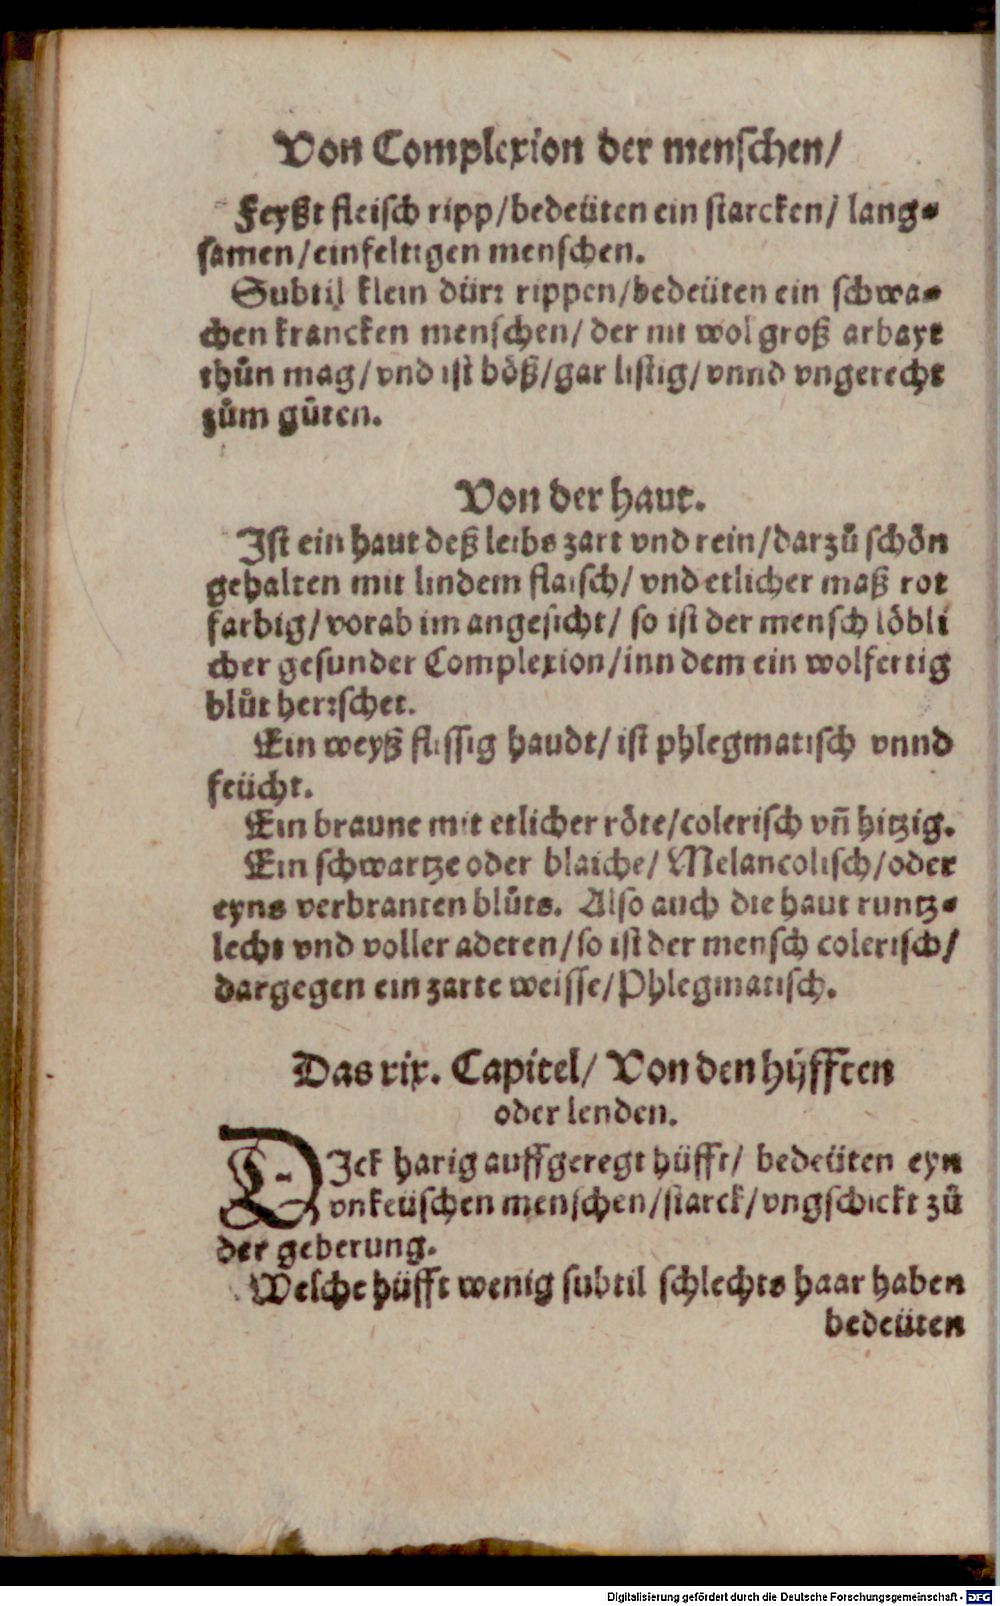 Von Complexion der menschen/
Feyßt fleisch ripp/bedeüten ein starcken/ lang⸗
samen/einfeltigen menschen.
Subtil klein dürꝛ rippen/bedeüten ein schwa⸗
chen krancken menschen/ der nit wol groß arbayt
thůn mag/vnd ist böß/gar listig/vnnd vngerecht
zům gůten.
Von der haut.
Ist ein haut deß leibs zart vnd rein/darzů schön
gehalten mit lindem flaisch/ vnd etlicher maß rot
farbig/vorab im angesicht/ so ist der mensch löbli
cher gesunder Complexion/inn dem ein wolfertig
blůt herꝛschet.
Ein weyß flissig haudt/ist phlegmatisch vnnd
feücht.
Ein braune mit etlicher röte/colerisch vñ hitzig.
Ein schwartze oder blaiche/ Melancolisch/oder
eyns verbranten blůts. Also auch die haut runtz⸗
lecht vnd voller aderen/so ist der mensch colerisch/
dargegen ein zarte weisse/Phlegmatisch.
Das xix. Capitel/ Von den hüfften
oder lenden.
DIck harig auffgeregt hüfft/ bedeüten eyn
vnkeüschen menschen/starck/vngschickt zů
der geberung.
Welche hüfft wenig subtil schlechts haar haben
bedeüten
Digitalisierung gefördert durch die Deutsche Forschungsgemeinschaft - DFG